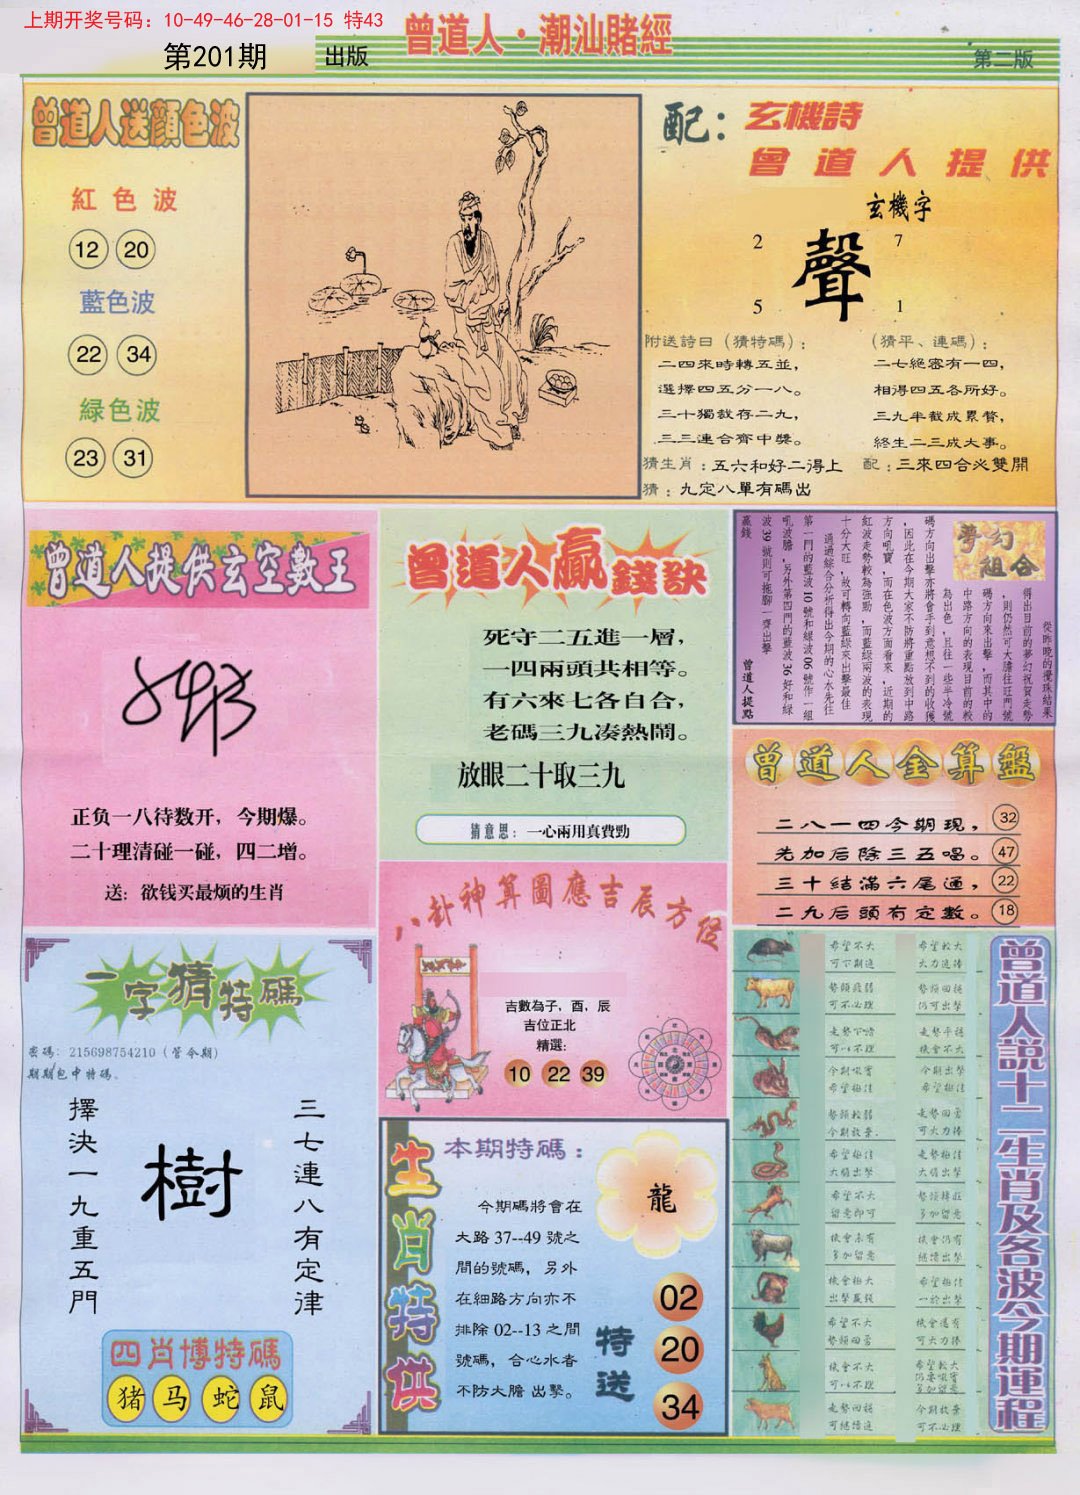 上期开奖号码：10-49-46-28-01-15 特43
第201期 出版
曾道人·潮汕賭經
第二版
曾道人送顏色波
紅色波
12 20
藍色波
22 34
緑色波
23 31
配：玄機詩
曾道人提供
玄機字
2 7
聲
5 1
附送詩曰（猜特碼）：
二四來時轉五並，
選擇四五分一八。
三十獨裁存二九，
三三連合齊中獎。
（猜平、連碼）：
二七絕密有一四，
相得四五各所好。
三九半截成累贅，
終生二三成大事。
猜生肖：五六和好二得上
配：三來四合必雙開
猜：九定八單有碼出
曾道人提供玄空數王
正负一八待数开，今期爆。
二十理清碰一碰，四二增。
送：欲钱买最烦的生肖
曾道人贏錢訣
死守二五進一層，
一四兩頭共相等。
有六來七各自合，
老碼三九凑熱鬧。
放眼二十取三九
猜意思：一心兩用真費勁
夢幻組合
從昨晚的攪珠結果
得出目前的夢幻祝賀走勢
，則仍然可大膽往旺門號
碼方向來出擊，而其中的
中路方向的表現目前的較
為出色，且往一些半冷號
碼方向出擊亦將會手到意想不到的收獲
，因此在今期大家不防將重點放到中路
方向吼寶，而在色波方面看來，近期的
紅波走勢較為強勁，而藍綠兩波的表現
十分大旺，故可轉向藍綠來出擊最佳
通過綜合分析得出今期的心水先往
第一門的藍波10號和綠波06號作一組
吼波膽，另外第四門的藍波36好和綠
波39號則可拖腳一齊出擊
贏錢
曾道人提點
曾道人金算盤
二八一四今期現， 32
先加后除三五唱。 47
三十結滿六尾通， 22
二九后頭有定數。 18
八卦神算圖應吉辰方位
吉數為子，酉，辰
吉位正北
精選：
10 22 39
一字猜特碼
密碼：215698754210（管令期）
期期包中特碼、
擇決一九重五門
樹
三七連八有定律
四肖博特碼
猪 马 蛇 鼠
生肖特供
本期特碼：
今期碼將會在
大路37--49號之
間的號碼，另外
在細路方向亦不
排除02--13之間
號碼，合心水者
不防大膽出擊。
龍
特送
02
20
34
曾道人說十二生肖及各波今期運程
希望不大
可下期進
希望較大
大力追捧
勢頭疲弱
可不必理
勢頭回穩
仍可出擊
走勢平穩
機會不大
今期吼實
希望極佳
今期出擊
希望極佳
勢頭較弱
今期放棄.
走勢回勇
可大力捧
走勢極佳
大膽出擊
走勢極佳
大膽出擊
希望不大
留意即可
多加留意
機會未有
多加留意
機會仍有
繼續出擊
機會極大
出擊贏錢
希望極佳
一於出擊
希望不大
勢頭回勇
機會還有
可大力捧
機會不大
可以不理
希望較大
仍要吼實
多加留意
走勢回穩
可繼續進
今期放棄
可不必理